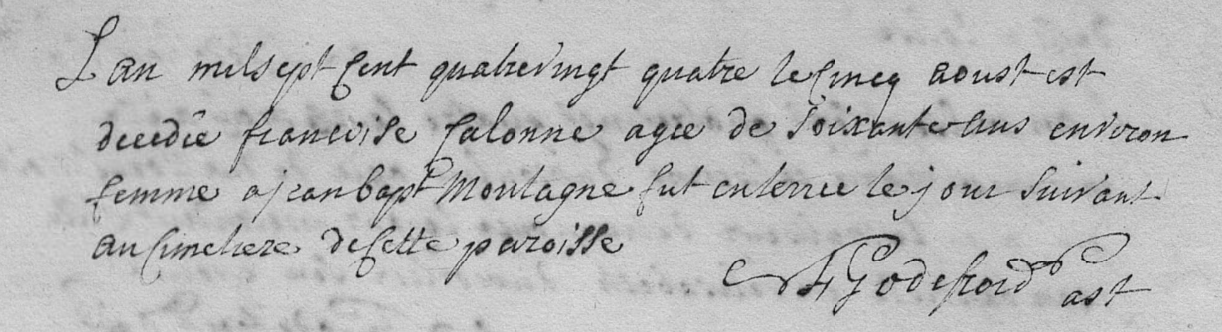 L'an mil sept cent quatrevingt quatre le cincq aoust est
decedée francoise Calonne agée de soixante ans environ
femme a jean bapt Montagne fut enterrée le jour suivant
au cimetiere de cette paroisse
Godefroid Past